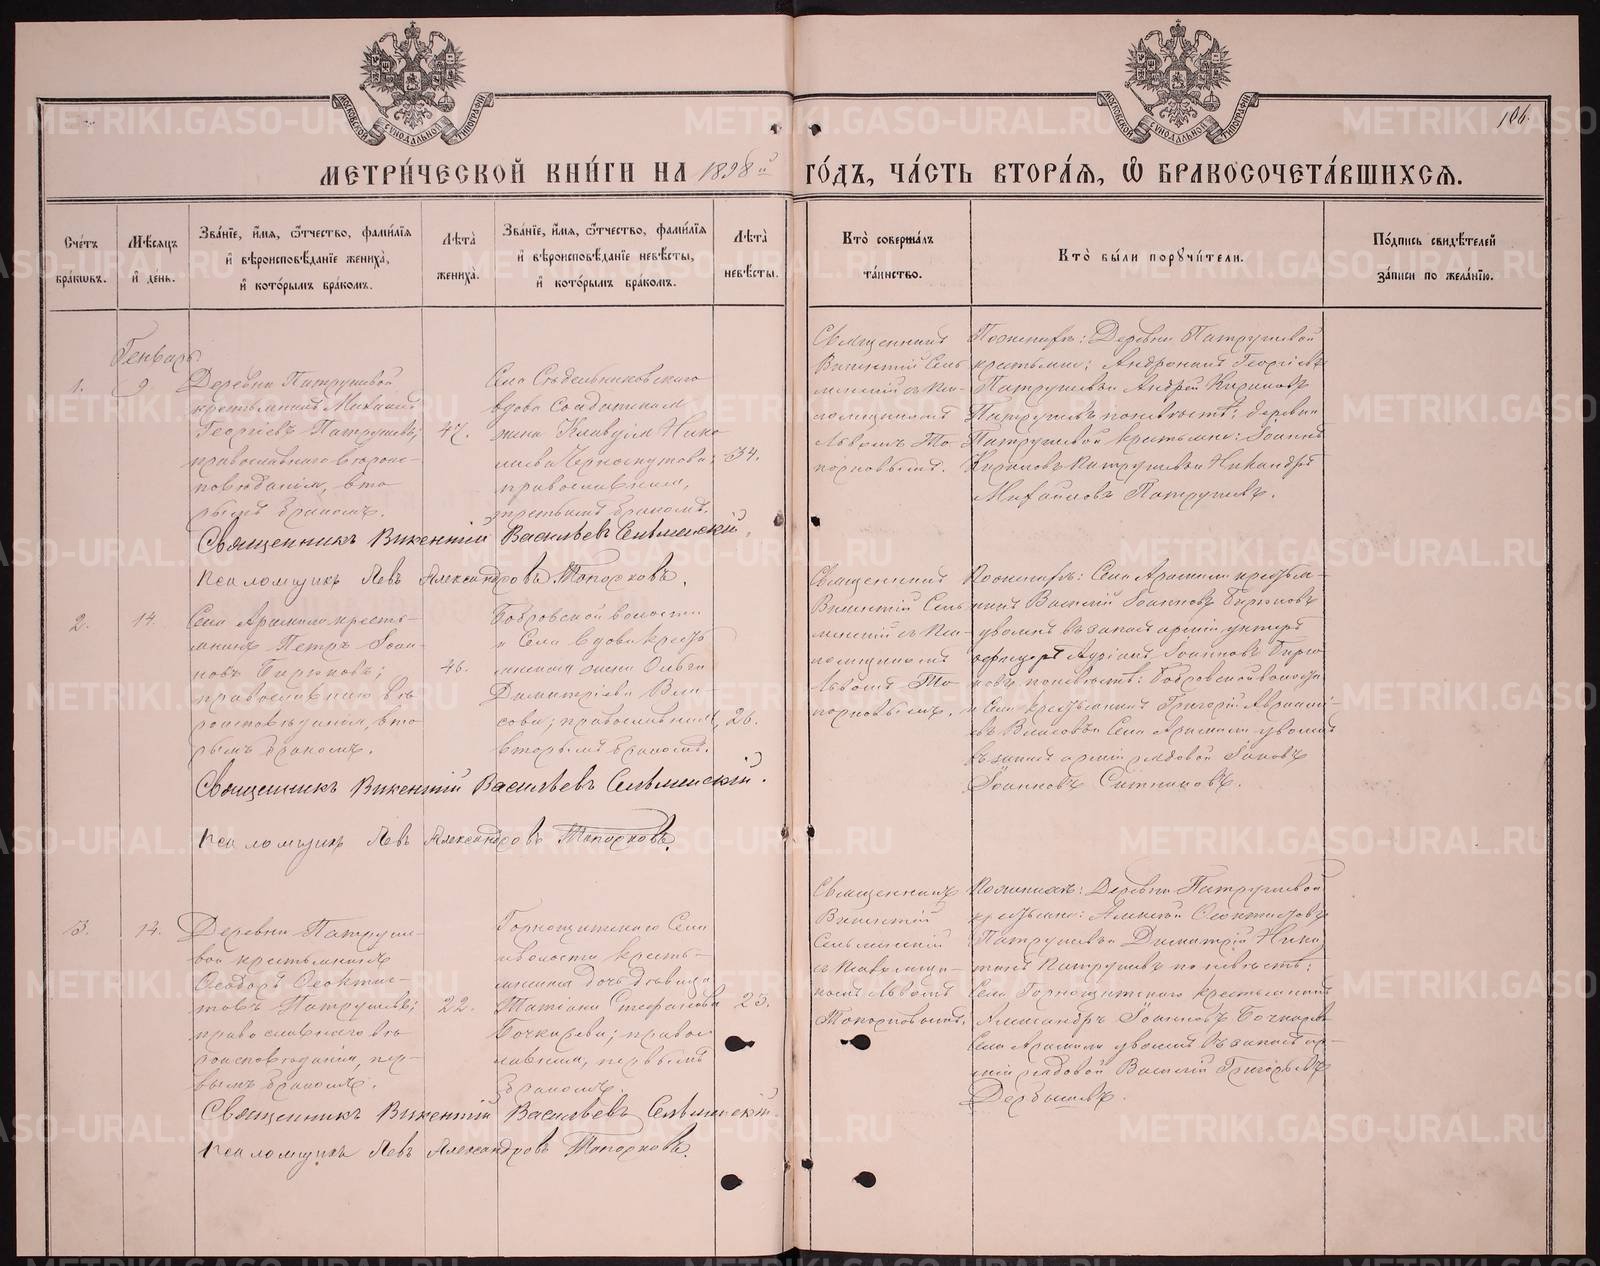 МОСКОВСКОЙ СѴНОДАЛЬНОЙ ТИПОГРАФІИ
МОСКОВСКОЙ СѴНОДАЛЬНОЙ ТИПОГРАФІИ
106.
МЕТРИ́ЧЕСКОЙ КНИ́ГИ НА 1898й ГО́ДЪ, ЧА́СТЬ ВТОРА́Я, Ѽ БРАКОСОЧЕТА́ВШИХСЯ.
Сче́тъ бра́кѡвъ.
Мѣ́сяцъ и҆ де́нь.
Зва́нїе, и҆́мя, ѻ҆́тчество, фами́лїя и҆ вѣроисповѣ́данїе жениха̀, и҆ кото́рымъ бра́комъ.
Лѣта̀ жениха̀.
Зва́нїе, и҆́мя, ѻ҆́тчество, фами́лїя и҆ вѣроисповѣ́данїе невѣ́сты, и҆ кото́рымъ бра́комъ.
Лѣта̀ невѣ́сты.
Кто̀ соверша́лъ та́инство.
Кто̀ бы́ли порꙋчи́тели.
По́дпись свидѣ́телей за́писи по жела́нїю.
Генварь.
1.
9.
Деревни Патрушевой
крестьянинъ Михаилъ
Георгіевъ Патрушевъ;
православнаго вѣроис-
повѣданія, вто-
рымъ бракомъ.
47.
Села
вдова солдатская
жена Клавдія Нико
лаева Черноскутова;
православная,
третьимъ бракомъ.
34.
Священникъ
Викентій Сель
менскій съ Пса-
ломщикомъ
Львомъ То-
порковымъ.
По женихѣ: Деревни Патрушевой
крестьяне: Андроникъ Георгіевъ
Патрушевъ и Андрей Кириловъ
Патрушевъ по невѣстѣ: деревни
Патрушевой крестьяне: Іоаннъ
Кириловъ Патрушевъ и Никандръ
Михайловъ Патрушевъ.
Священникъ Викентій Васильевъ Сельменскій.
Псаломщикъ Левъ Александровъ Топорковъ.
2.
14.
Села Арамили кресть-
янинъ Петръ Іоан-
новъ Бирюковъ;
православнаго вѣ-
роисповѣданія, вто-
рымъ бракомъ.
46.
Бобровской волости
и Села вдова кресть
янская жена Ольга
Димитріева Вла-
сова; православная,
вторымъ бракомъ.
26.
Священникъ
Викентій Сель
менскій съ Пса-
ломщикомъ
Львомъ То-
порковымъ.
По женихѣ: Села Арамили крестья-
нинъ Василій Іоанновъ Бирюковъ
уволен. въ запас арміи унтеръ
офицеръ Іоанновъ Бирю-
ковъ, по невѣстѣ: Бобровской волости
и Села крестьянинъ Григорій Аврамі-
евъ Власовъ и Села Арамили уволен
въ запас арміи рядовой Іаковъ
Іоанновъ Ситниковъ.
Священникъ Викентій Васильевъ Сельменскій.
Псаломщикъ Левъ Александровъ Топорковъ.
3.
14.
Деревни Патруше-
вой крестьянинъ
Ѳеодоръ Ѳеоктис-
товъ Патрушевъ;
православнаго вѣ-
роисповѣданія, пер-
вымъ бракомъ.
22.
Горнощитскаго Села
и волости кресть-
янская дочь дѣвица
Татіана Стефанова
Бочкарева; право-
славная, первымъ
бракомъ.
25.
Священникъ
Викентій
Сельменскій
съ Псаломщи-
комъ Львомъ
Топорковымъ.
По женихѣ: Деревни Патрушевой
крестьяне: Алексѣй Ѳеоктистовъ
Патрушевъ и Димитрій Ники
тинъ Патрушевъ по невѣстѣ:
Села Горнощитскаго крестьянинъ
Александръ Іоанновъ Бочкаревъ
Села Арамили уволен. въ запас ар-
міи рядовой Василій Григорьевъ
Дербышевъ.
Священникъ Викентій Васильевъ Сельменскій.
Псаломщикъ Левъ Александровъ Топорковъ.
METRIKI.GASO-URAL.RU